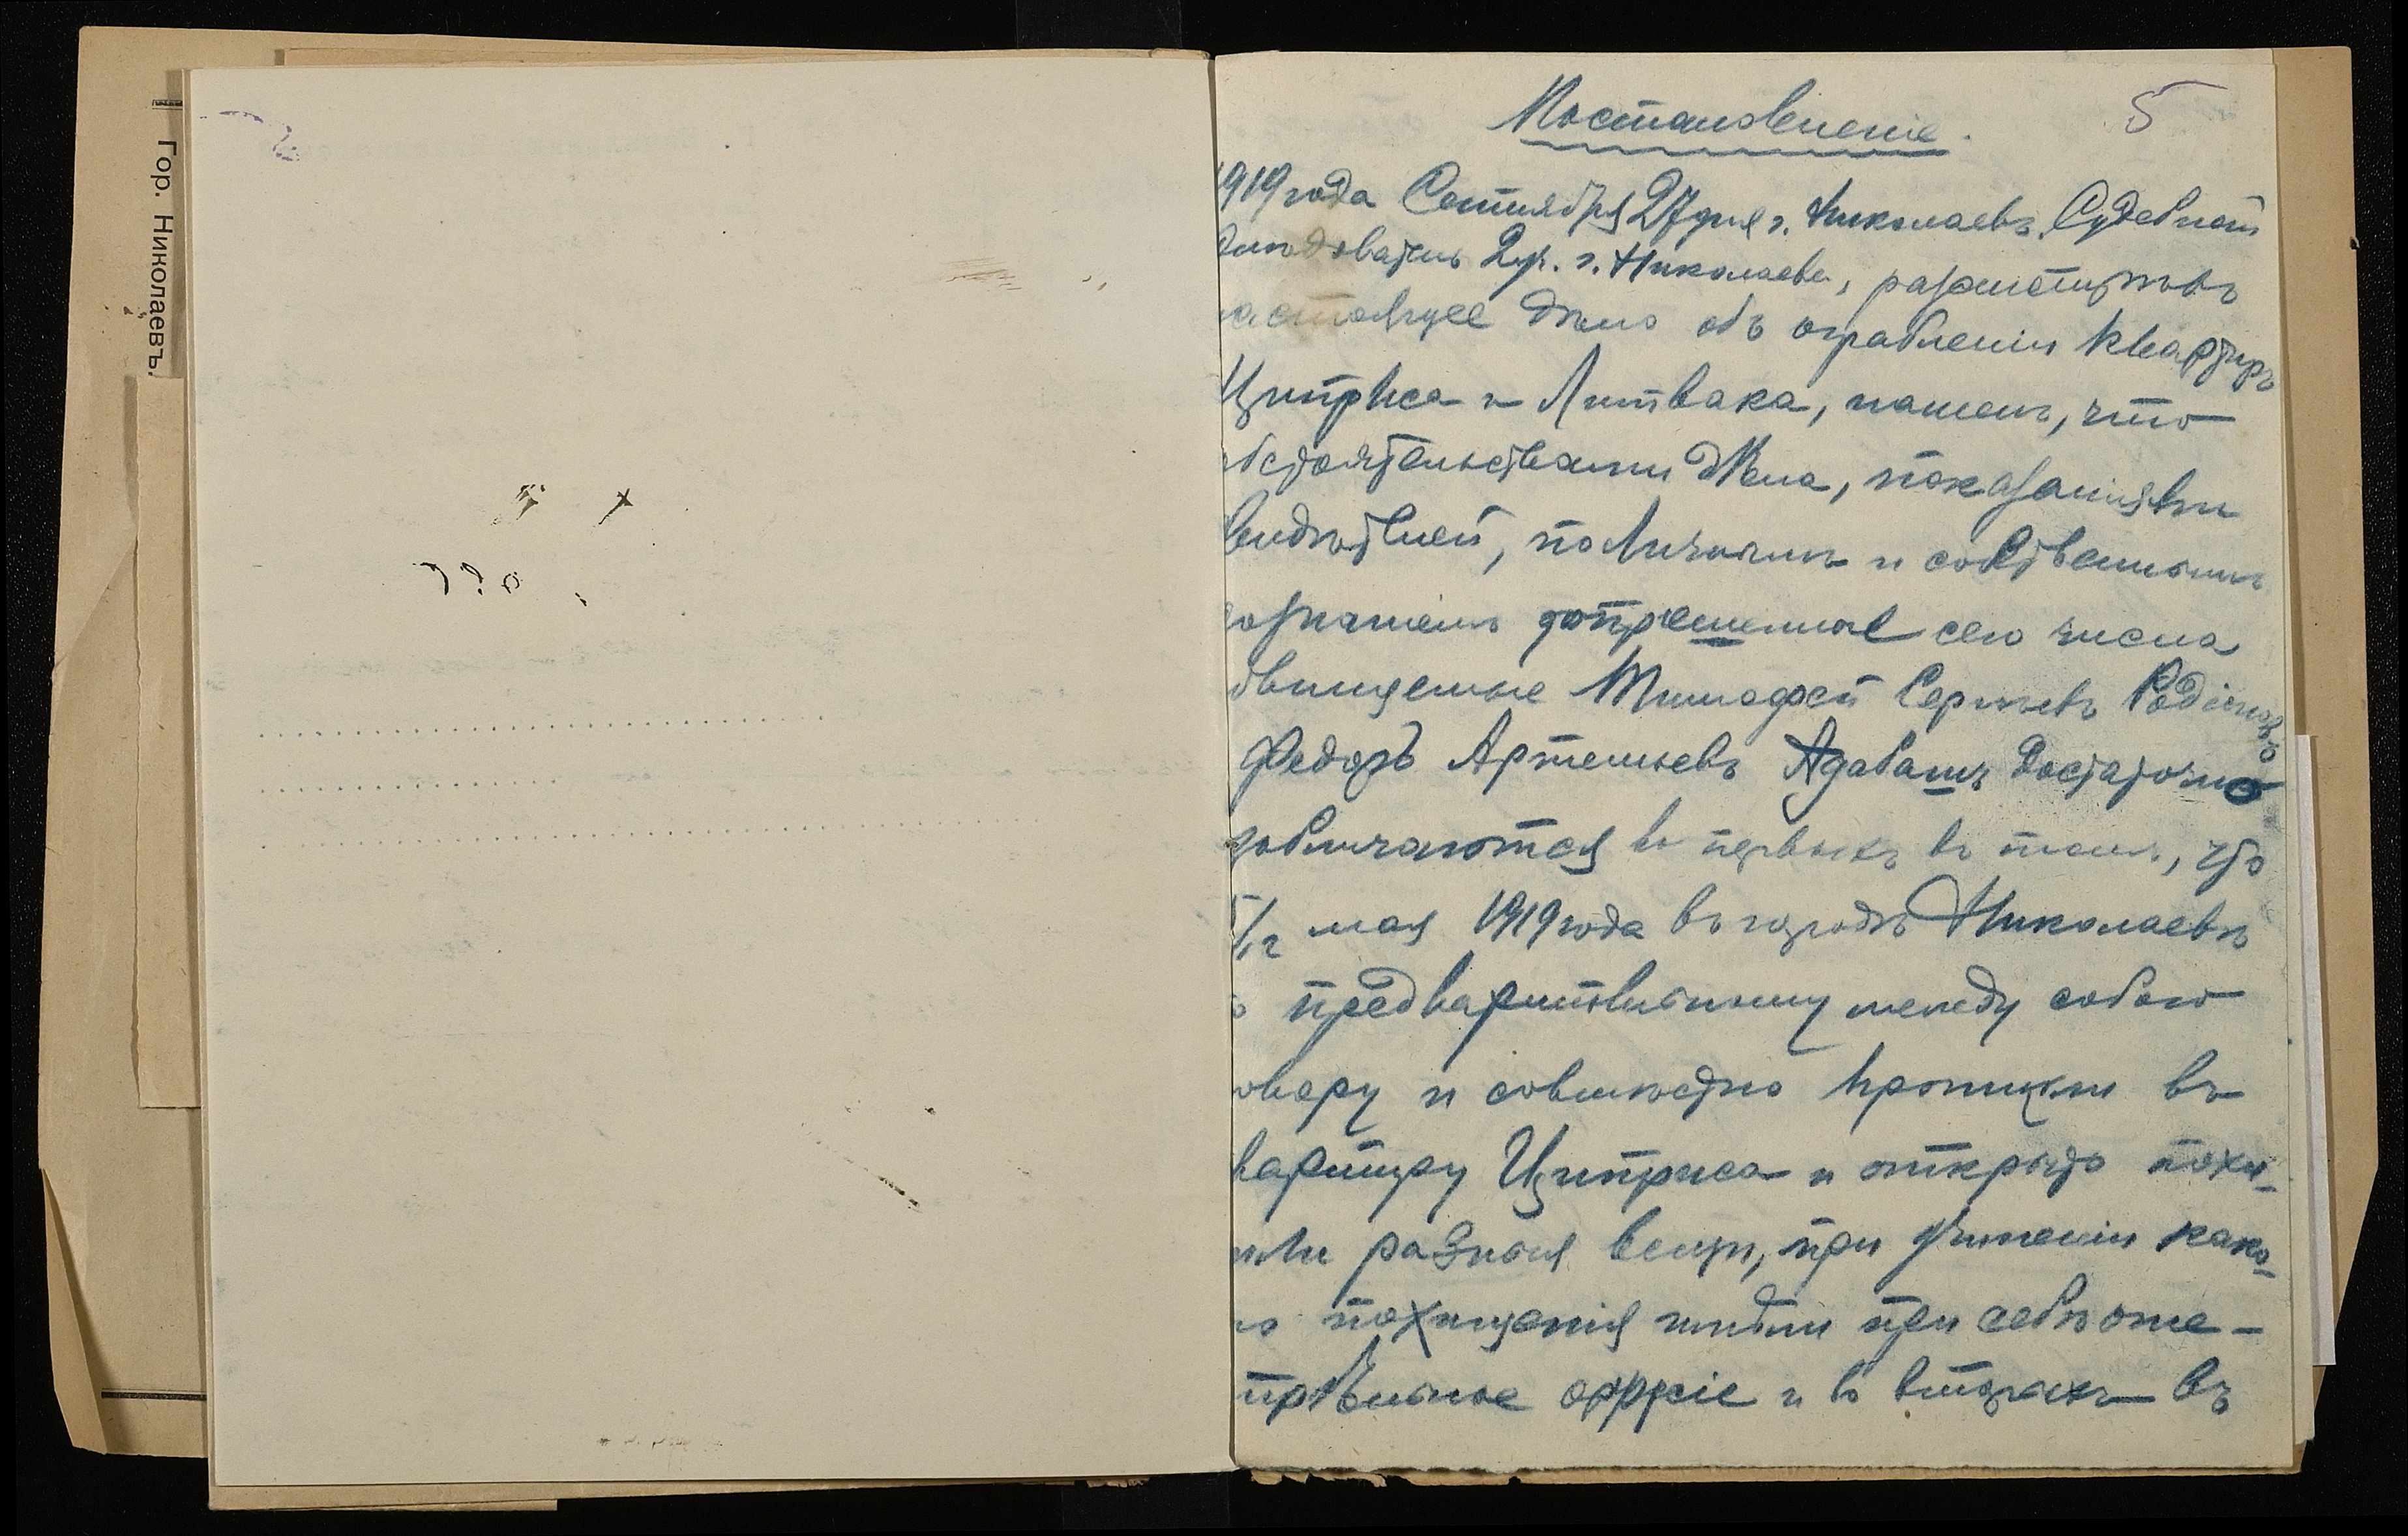 Гор. Николаевъ.
5
Постановленіе.
1919 года Сентября 27 дня г. Николаевъ. Судебный
слѣдователь 2 уч. г. Николаева, разсмотрѣвъ
настоящее дѣло объ ограбленіи квартиръ
Циприса и Литвака, нашелъ, что
обстоятельствами дѣла, показаніями
свидѣтелей, поличнымъ и собственнымъ
сознаніемъ допрошенные сего числа
обвиняемые Тимофей Сергѣевъ Родіоновъ
Федоръ Артемьевъ Адабашъ достаточно
изобличаются во первыхъ въ томъ, что
мая 1919 года въ городѣ Николаевѣ
по предварительному между собою
уговору и совмѣстно проникли въ
квартиру Циприса и открыто похи-
тили разныя вещи, при учиненіи како-
го похищенія имѣли при себѣ огне-
стрѣльное оружіе и во вторыхъ въ